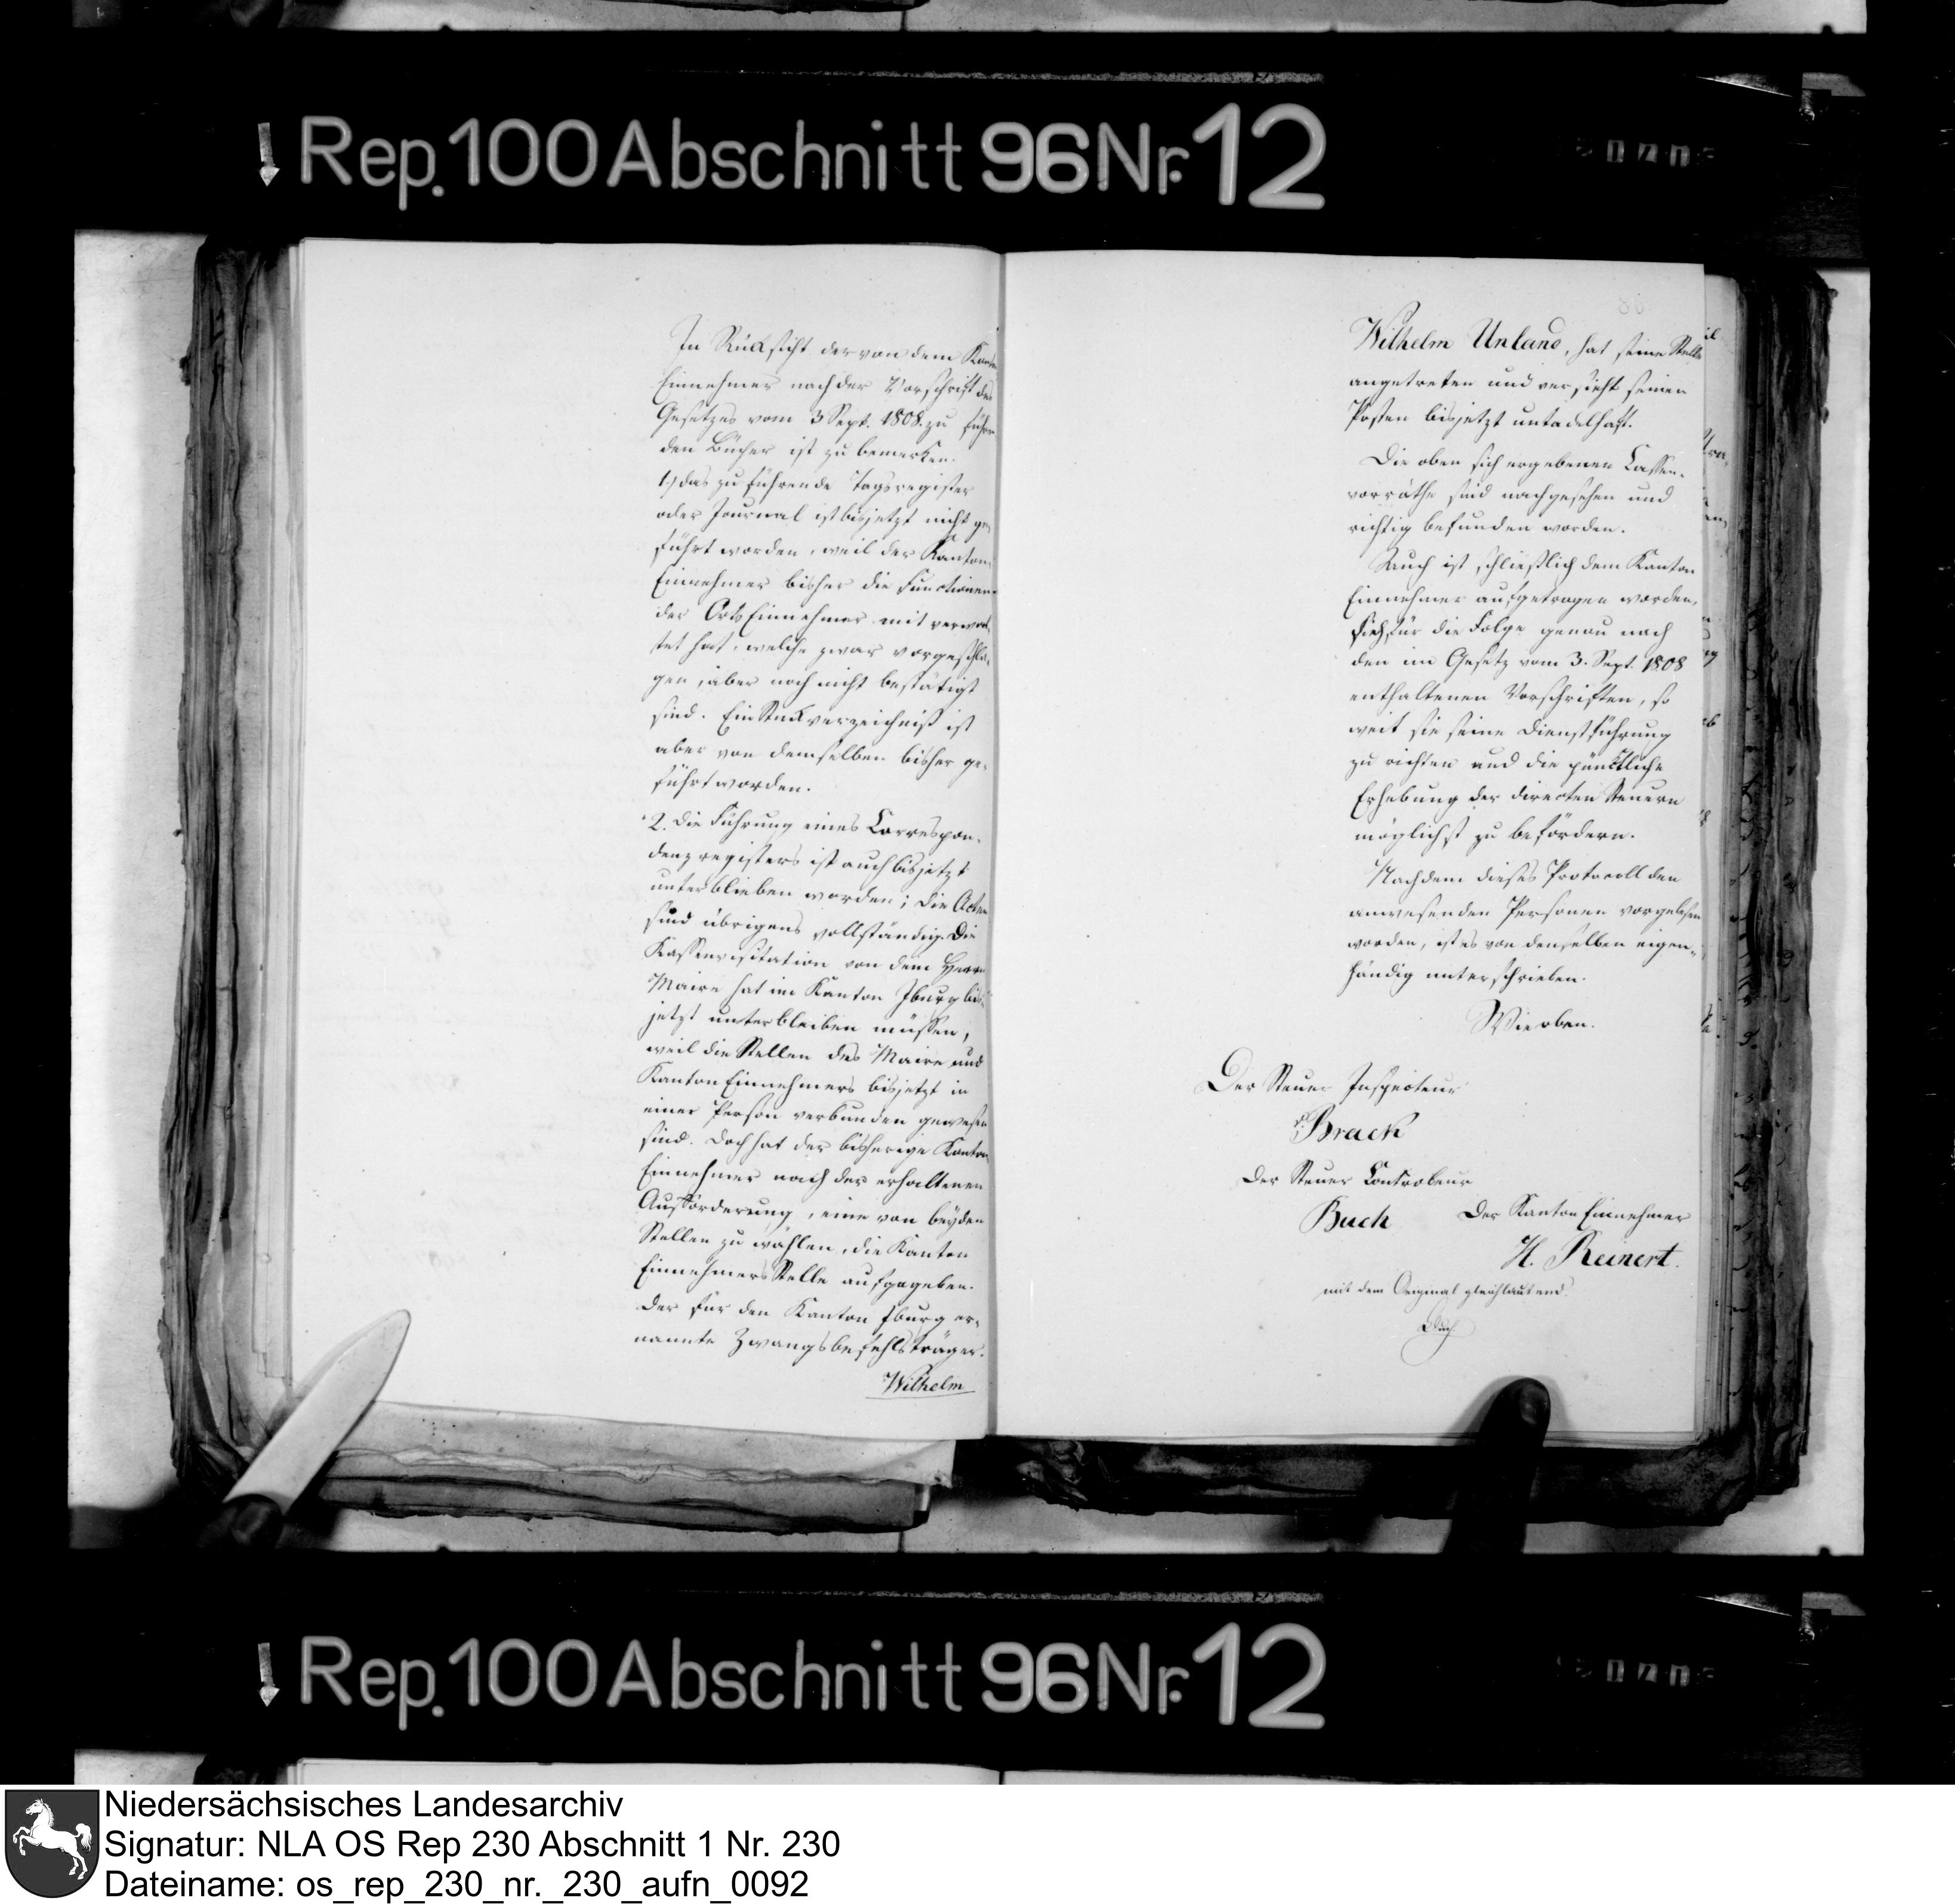 Rep. 100 Abschnitt 96 Nr. 12
In Rücksicht der von dem Kanton
Einnehmer nach der Vorschrift des
Gesetzes vom 3 Sept. 1808. zu führen
den Bücher ist zu bemerken.
1.) das zu führende Tagsregister
oder Journal ist bis jetzt nicht ge-
führt worden, weil der Kanton-
Einnehmer bisher die Functionen
der Orts Einnehmer mit verwal-
tet hat, welche zwar vorgeschla-
gen, aber noch nicht bestätigt
sind. Ein Stückverzeichniß ist
aber von demselben bisher ge-
führt worden.
2. die Führung eines Correspon-
denzregisters ist auch bis jetzt
unterblieben worden; die Acten
sind übrigens vollständig. Die
Kassenvisitation von dem Herrn
Maire hat im Kanton Iburg bis-
jetzt unterbleiben müssen,
weil die Stellen des Maire und
Kanton Einnehmers bis jetzt in
einer Person verbunden gewesen
sind. Doch hat der bisherige Kanton
Einnehmer nach der erhaltenen
Aufforderung, eine von beyden
Stellen zu wählen, die Kanton
Einnehmers Stelle aufgegeben.
Der für den Kanton Iburg er-
nannte Zwangsbefehlsträger.
Wilhelm
Wilhelm Unland, hat seine Stelle
angetreten und versieht seinen
Posten bis jetzt untadelhaft.
Die oben sich ergebenen Cassen-
vorräthe sind nachgesehen und
richtig befunden worden.
Auch ist schließlich dem Kanton
Einnehmer aufgetragen worden,
sich für die Folge genau nach
den im Gesetz vom 3. Sept. 1808
enthaltenen Vorschriften, so
weit sie seine Dienstführung
zu richten und die pünktliche
Erhebung der directen Steuern
möglichst zu befördern.
Nachdem dieses Protocoll den
anwesenden Personen vorgelesen
worden, ist es von denselben eigen-
händig unterschrieben.
Wie oben.
Der Steuer Inspecteur
Brack
Der Steuer Controleur
Buch Der Kanton Einnehmer
H. Reinert.
mit dem Original gleichlautend.
Buch
Rep. 100 Abschnitt 96 Nr. 12
Niedersächsisches Landesarchiv
Signatur: NLA OS Rep 230 Abschnitt 1 Nr. 230
Dateiname: os_rep_230_nr._230_aufn_0092